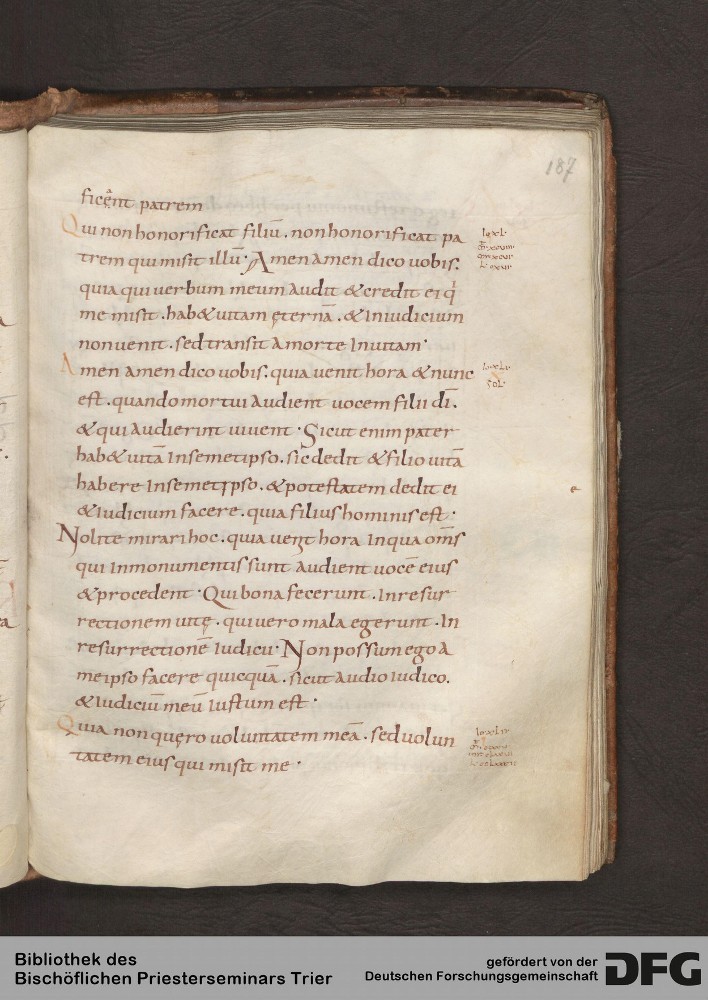 187
ficent patrem
Qui non honorificat filiū. non honorificat pa
trem qui misit illū. Amen amen dico uobis.
quia qui uerbum meum audit & credit ei q
me misit. hab& uitam ęternā. & in iudicium
non uenit. sed transit a morte in uitam.
Amen amen dico uobis. quia uenit hora & nunc
est. quando mortui audient uocem filii dī.
& qui audierint uiuent. Sicut enim pater
hab& uitā in semetipso. sic dedit & filio uitā
habere in semetipso. & potestatem dedit ei
& iudicium facere. quia filius hominis est.
Nolite mirari hoc. quia uenit hora in qua om̄s
qui in monumentis sunt audient uocē eius
& procedent. Qui bona fecerunt. in resur
rectionem uitę. qui uero mala egerunt. in
resurrectionē iudicii. Non possum ego a
me ipso facere quicquā. sicut audio iudico.
& iudiciū meū iustum est.
Quia non quęro uoluntatem meā. sed uolun
tatem eius qui misit me.
Bibliothek des
Bischöflichen Priesterseminars Trier
gefördert von der
Deutschen Forschungsgemeinschaft
DFG